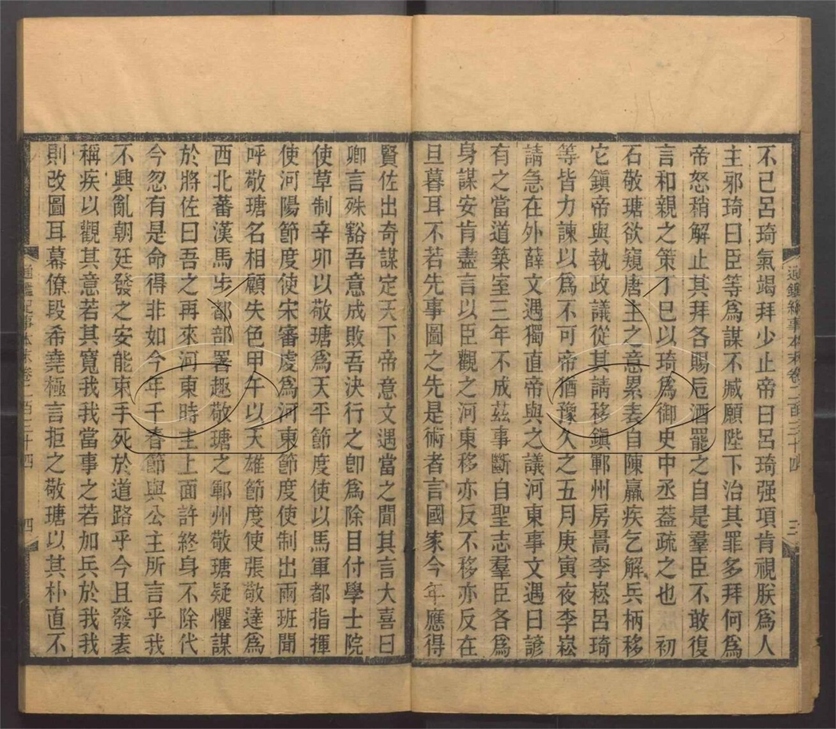 不已呂琦氣竭拜少止帝曰呂琦强項肯視朕爲人
主邪琦曰臣等爲謀不臧願陛下治其罪多拜何爲
帝怒稍解止其拜各賜卮酒罷之自是羣臣不敢復
言和親之策丁巳以琦爲御史中丞葢疏之也 初
石敬瑭欲窺唐主之意累表自陳羸疾乞解兵柄移
它鎭帝與執政議從其請移鎭鄆州房暠李崧呂琦
等皆力諫以爲不可帝猶豫久之五月庚寅夜李崧
請急在外薛文遇獨直帝與之議河東事文遇曰諺
有之當道築室三年不成兹事斷自聖志羣臣各爲
身謀安肯盡言以臣觀之河東移亦反不移亦反在
旦暮耳不若先事圖之先是術者言國家今年應得
賢佐出奇謀定天下帝意文遇當之聞其言大喜曰
卿言殊豁吾意成敗吾決行之卽爲除目付學士院
使草制辛卯以敬瑭爲天平節度使以馬軍都指揮
使河陽節度使宋審虔爲河東節度使制出兩班聞
呼敬瑭名相顧失色甲午以天雄節度使張敬達爲
西北蕃漢馬步都部署趣敬瑭之鄆州敬瑭疑懼謀
於將佐曰吾之再來河東時主上面許終身不除代
今忽有是命得非如今年千春節與公主所言乎我
不興亂朝廷發之安能束手死於道路乎今且發表
稱疾以觀其意若其寬我我當事之若加兵於我我
則改圖耳幕僚段希堯極言拒之敬瑭以其朴直不
通鑑紀事本末卷二百三十四 三
通鑑紀事本末卷二百三十四 四